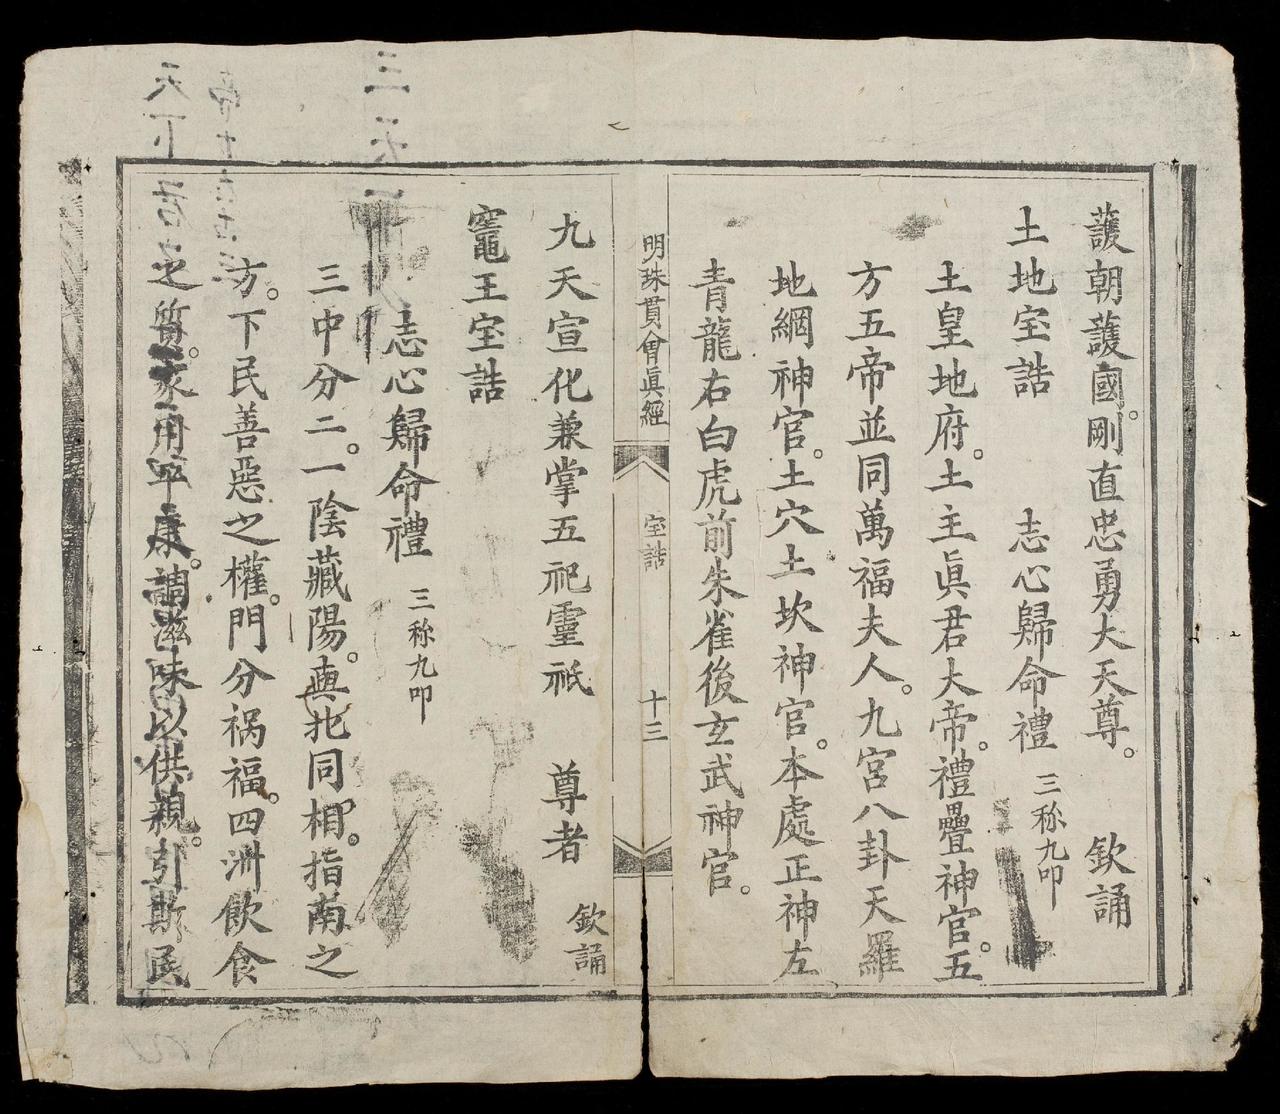 護朝護國。剛直忠勇大天尊。 欽誦
土地宝誥 志心歸命禮 三称九叩
土皇地府。土主眞君大帝。禮疊神官。五
方五帝並同萬福夫人。九宮八卦天羅
地網神官。土穴土坎神官。本處正神左
青龍右白虎前朱雀後玄武神官。
明珠貫會眞經 宝誥 十三
九天宣化兼掌五祀靈祇 尊者 欽誦
竈王宝誥
志心歸命禮 三称九叩
三中分二。一陰藏陽。與北同相。指南之
方。下民善惡之權。門分祸福。四洲飲食
之質。家用平康。調滋味以供親。引斯民